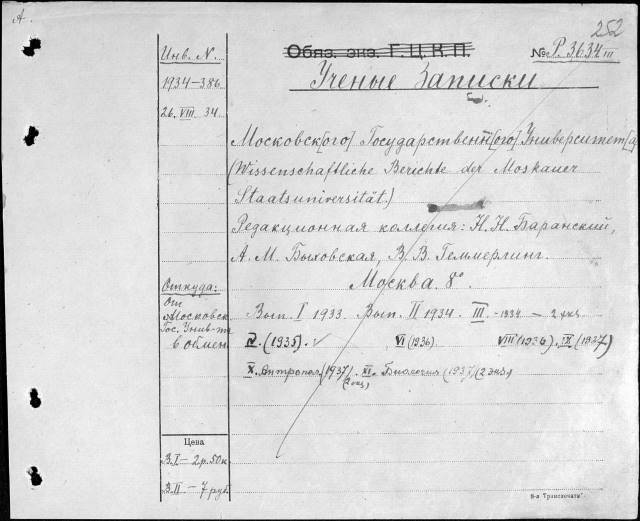 A
252
Инв. N.
Обяз. экз. Г.Ц.К.П.
№ Р. 3634 III
1934-386
Ученые Записки
26. VIII 34.
Московск[ого] Государственн[ого] Университет[а]
(Wissenschaftliche Berichte der Moskauer
Staatsuniversität.)
Редакционная коллегия: Н.Н. Баранский,
А. М. Быховская, В. В. Геммерлинг.
Москва. 8°.
Откуда:
От
Московск.
Гос. Унив-та
в обмен
Вып. I 1933. Вып. II 1934. III - 1934 - 2 экз
IV. (1935). ✓ VI (1936). VIII (1936). IX (1937)
X. Антропол. (1937) (2 экз.) XI. Биология (1937) (2 экз)
Цена
В. I - 2 р. 50 к
В. II - 7 руб.
8-я "Транспечати".